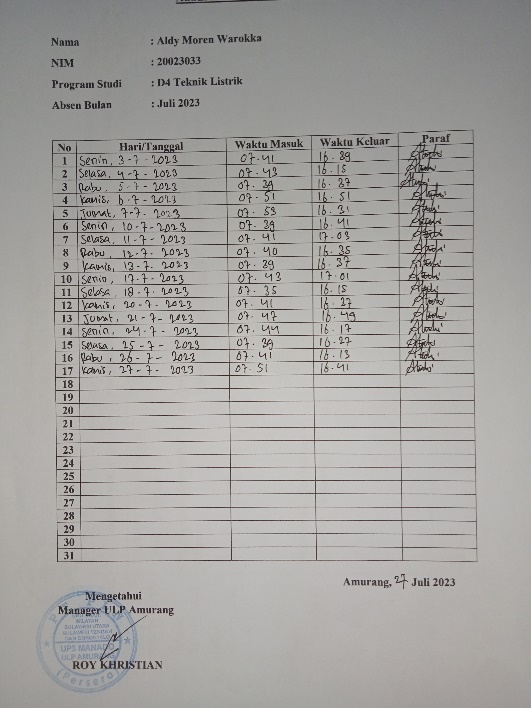 Nama : Aldy Moren Warokka
NIM : 20023033
Program Studi : D4 Teknik Listrik
Absen Bulan : Juli 2023
No Hari/Tanggal Waktu Masuk Waktu Keluar Paraf
1 Senin, 3-7-2023 07.41 16.39
2 Selasa, 4-7-2023 07.43 16.15
3 Rabu, 5-7-2023 07.39 16.27
4 Kamis, 6-7-2023 07.51 16.51
5 Jumat, 7-7-2023 07.53 16.31
6 Senin, 10-7-2023 07.39 16.41
7 Selasa, 11-7-2023 07.41 17.03
8 Rabu, 12-7-2023 07.40 16.35
9 Kamis, 13-7-2023 07.39 16.37
10 Senin, 17-7-2023 07.43 17.01
11 Selasa, 18-7-2023 07.35 16.15
12 Kamis, 20-7-2023 07.41 16.27
13 Jumat, 21-7-2023 07.47 16.49
14 Senin, 24-7-2023 07.44 16.17
15 Selasa, 25-7-2023 07.39 16.27
16 Rabu, 26-7-2023 07.41 16.13
17 Kamis, 27-7-2023 07.51 16.41
18
19
20
21
22
23
24
25
26
27
28
29
30
31
Amurang, 27 Juli 2023
Mengetahui
Manager ULP Amurang
WILAYAH
SULAWESI UTARA
SULAWESI TENGAH
DAN GORONTALO
UP3 MANADO
ULP AMURANG
(Persero)
ROY KHRISTIAN